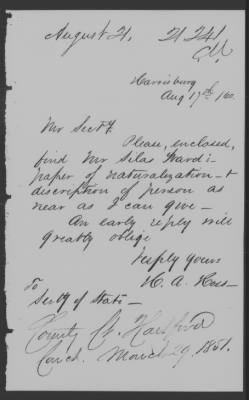 August 21. 21241
Harrisburg
Aug 17th '60.
Mr Secty.
Please, enclosed,
find Mr Silas Ward's
paper of naturalization - &
discription of person as
near as I can give -
An early reply will
greatly oblige
Yours
To H. A.
Secty of State -
County Ct.
March 29, 1851.